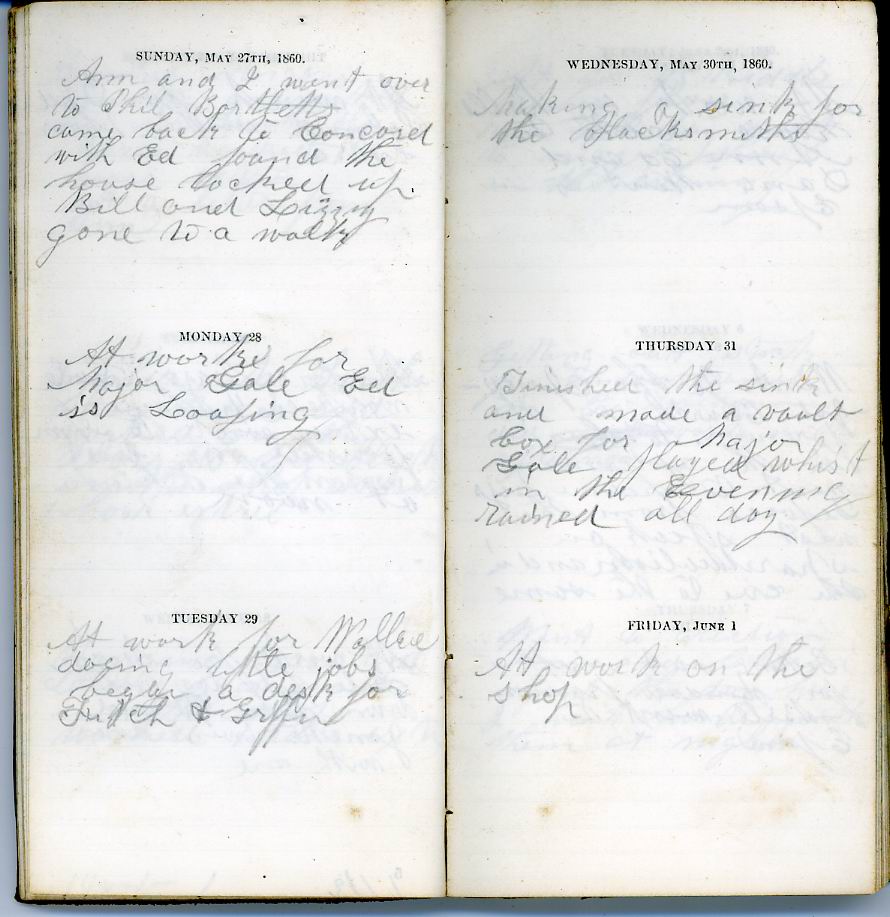 SUNDAY, MAY 27TH, 1860.
Ann and I went over
to Phil Bartletts
came back to Concord
with Ed found the
house locked up.
Bill and Lizzy
gone to a walk
MONDAY 28
At worke for
Major Gale Ed
is Loafing
TUESDAY 29
At work for Wallace
doeing little jobs
began a desk for
&
WEDNESDAY, MAY 30TH, 1860.
Making a sink for
the Blacksmiths
THURSDAY 31
Finished the sink
and made a vault
box for Major
Gale played whist
in the Evening
rained all day
FRIDAY, JUNE 1
At work on the
shop